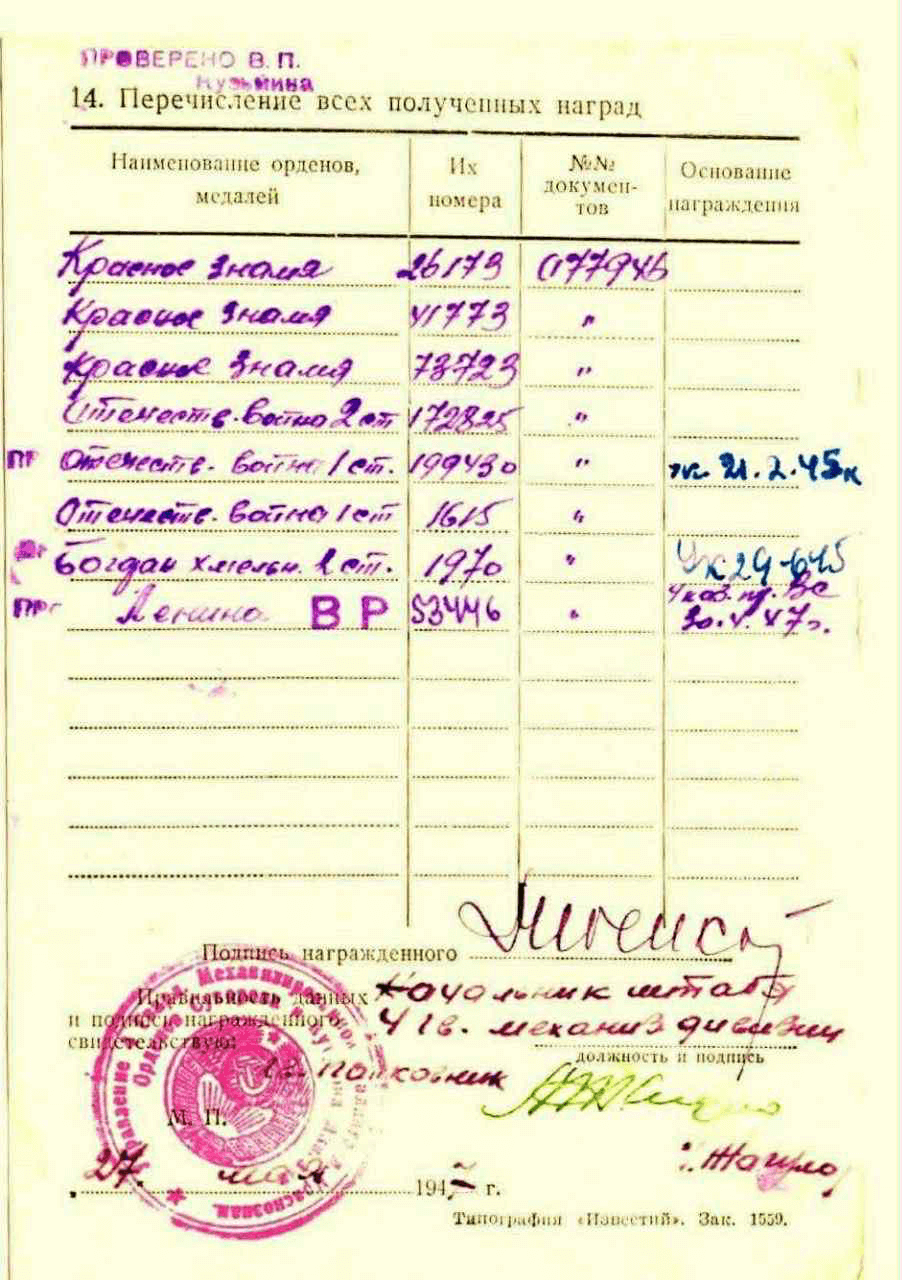 ПРОВЕРЕНО В. П.
Кузьмина
14. Перечисление всех полученных наград
Наименование орденов, медалей
Их номера
№№ докумен-тов
Основание награждения
Красное Знамя 26173 0177946
Красное Знамя 41773 "
Красное Знамя 73723 "
Отечеств. война 2 ст 172825 "
ПР Отечеств. война 1 ст. 199430 " 21.2.45
Отечеств. война 1 ст 1615 "
Богдан Хмельн. 2 ст. 1970 " Ук 29-6-45
ПР Ленина ВР 53446 " Указ. пр. ВС
30.4.47г.
Подпись награжденного
Правильность данных Начальник штаба
и подпись награжденного 4 гв. механиз дивизии
свидетельствую:
должность и подпись
гв. полковник
М. П.
27. мая 1947 г.
Типография «Известий». Зак. 1559.